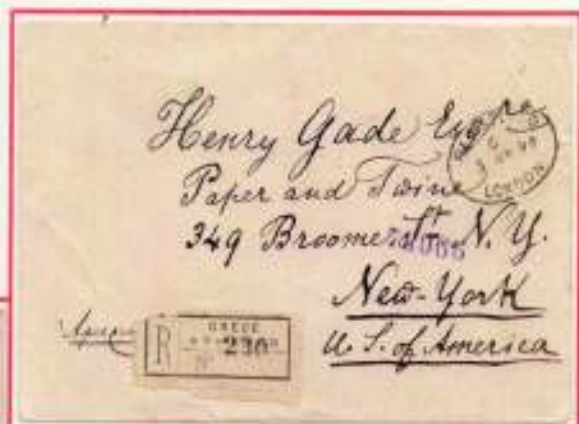 Henry Gade Esqre
LONDON
Paper and Twine
349 Broome St N.Y.
New-York
U. S. of America
R
GRECE
No 230